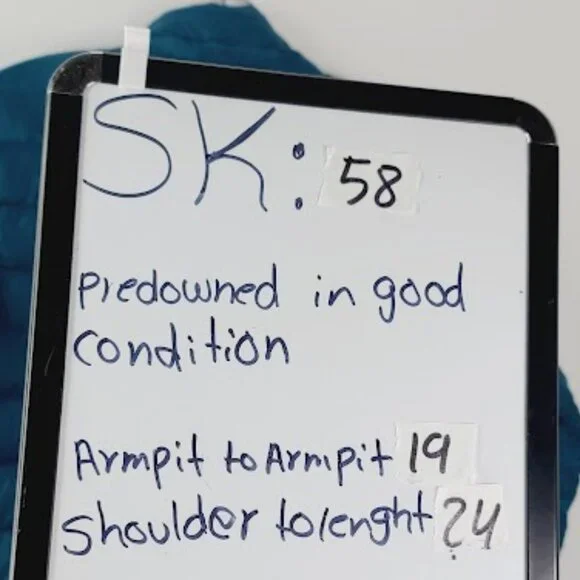 SK: 58
predowned in good
condition
Armpit to Armpit 19
shoulder to lenght 24